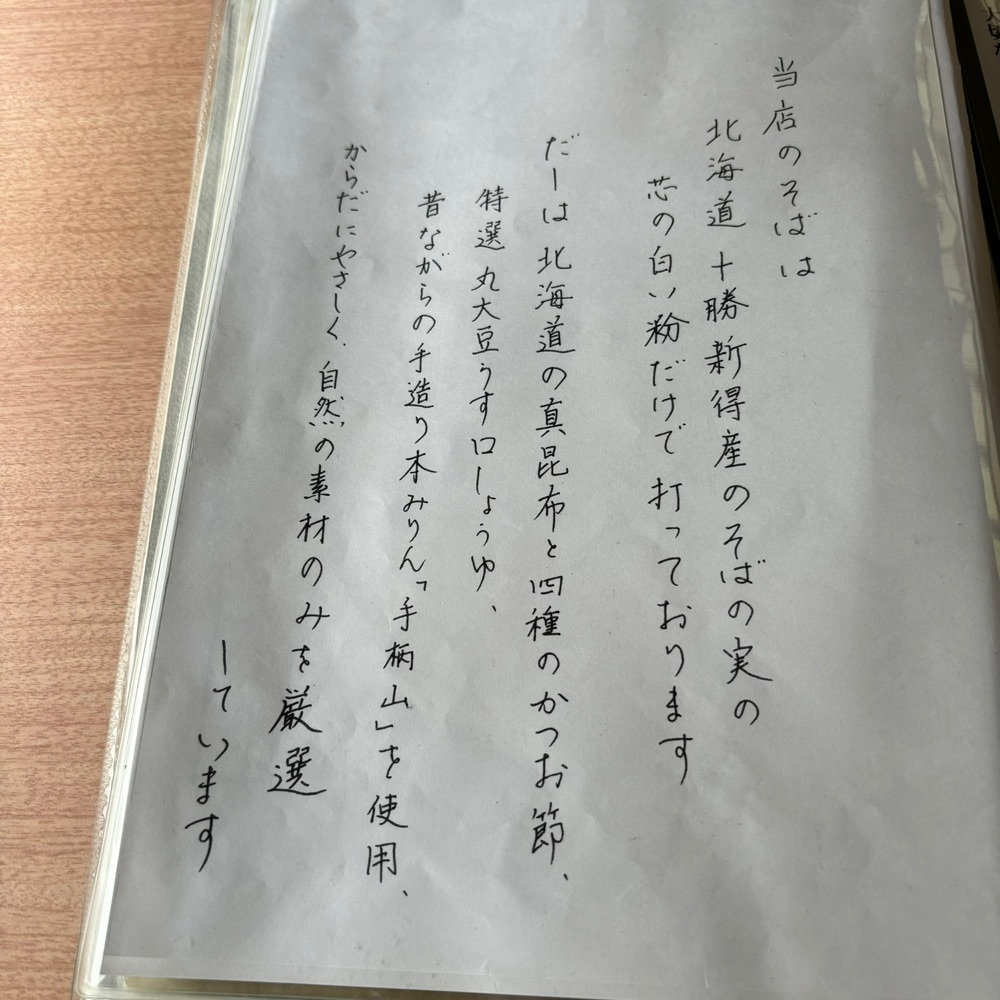 当店のそばは
北海道 十勝新得産のそばの実の
芯の白い粉だけで 打っております
だしは 北海道の真昆布と四種のかつお節、
特選 丸大豆うす口しょうゆ、
昔ながらの手造り本みりん「手柄山」を使用、
からだにやさしく、自然の素材のみを厳選
しています